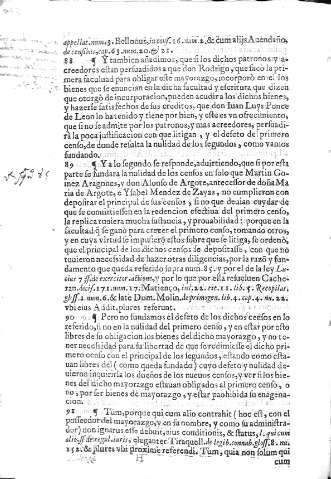 appellat. num. 3. Bellonus, in conf. 26. num. 2. & cum alijs Auendaño,
de censibus, cap. 63. num. 20. & 21.
88 ¶ Y tambien añadimos, que si los dichos patronos y a-
creedores estan persuadidos a que don Rodrigo, que sacò la pri-
mera facultad para obligar este mayorazgo, incorporò en el los
bienes que se enuncian en la dicha facultad y escritura que dizen
que otorgò de incorporacion, pueden acudir a los dichos bienes,
y hazerse satisfechos de sus creditos, que don Iuan Luys Ponce
de Leon lo ha tenido y tiene por bien, y este es vn ofrecimiento,
que si no se admite por los patronos, y mas acreedores, persuadi-
rà la poca justificacion con que litigan, y el defeto de primero
censo, de donde resulta la nulidad de los segundos, como vamos
fundando.
89 ¶ Y a lo segundo se responde, aduirtiendo, que si por esta
parte se fundara la nulidad de los censos en solo que Martin Go-
mez Aragones, y don Alonso de Argote, antecessor de doña Ma
ria de Argote, e Ysabel Mendez de Zayas, no cumplieron con
depositar el principal de sus censos, si no que deuian cuydar de
que se conuirtiesse en la redencion efectiua del primero censo,
la replica tuuiera mucha sustancia, y prouabilidad: porque en la
facultad q̃ se ganò para crecer el primero censo, tomando otros,
y en cuya virtud se impusierõ estos sobre que se litiga, se ordenò,
que el principal de los dichos censos se depositasse, con que no
tuuieron necessidad de hazer otras diligencias, por la razõ y fun-
damento que queda referido supra num. 85. y por el de la ley Lu-
cius 7. ff. de exercitor. actione, y por lo que por ella resueluen Cache-
ran. decis. 171. num. 17. Matienço, inl. 22. tit. 11. lib. 5. Recopilat.
gloss. 1. num. 6. & late Dum. Molin. de primogen. lib. 4. cap. 4. nu. 22.
vbi eius Addit. plures referunt.
90 ¶ Pero no fundamos el defeto de los dichos censos en lo
referido, si no en la nulidad del primero censo, y en estar por esto
libres de su obligacion los bienes del dicho mayorazgo, y no te-
ner necessidad para su libertad de que se redimiesse el dicho pri-
mero censo con el principal de los segundos, estando como esta-
uan libres del (como queda fundado) cuyo defeto y nulidad de-
uieron inquirir los dueños de los nueuos censos, y ver si los bie-
nes del dicho mayorazgo estauan obligados al primero censo, o
no, por ser bienes de mayorazgo, y estar prohibida su enagena-
cion.
91 ¶ Tum, porque qui cum alio contrahit (hoc est, con el
possedor del mayorazgo, y en su nombre, y como su administra-
dor) non ignarus esse debuit, eius conditionis, & status, l. qui cum
alio, ff. de regul. iuris, eleganter Tiraquell. de legib. connub. gloss. 8. nu.
152. & plures vbi proxime referendi. Tum, quia non solum qui
cum